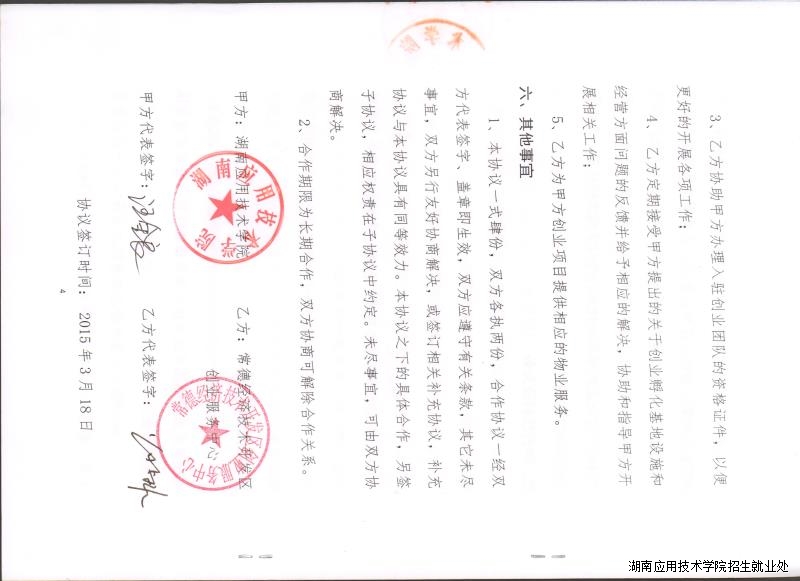 3、乙方协助甲方办理入驻创业团队的资格证件，以便
更好的开展各项工作；
4、 乙方定期接受甲方提出的关于创业孵化基地设施和
经营方面问题的反馈并给予相应的解决，协助和指导甲方开
展相关工作；
5、乙方为甲方创业项目提供相应的物业服务。
六、其他事宜
1、本协议一式肆份，双方各执两份，合作协议一经双
方代表签字、盖章即生效，双方应遵守有关条款，其它未尽
事宜，双方另行友好协商解决，或签订相关补充协议，补充
协议与本协议具有同等效力。本协议之下的具体合作，另签
子协议，相应权责在子协议中约定。未尽事宜，可由双方协
商解决。
2、合作期限为长期合作，双方协商可解除合作关系。
甲方：湖南应用技术学院 乙方：常德经济技术开发区
创业服务中心
湖南应用技术学院
常德经济技术开发区创业服务中心
甲方代表签字： 乙方代表签字：
协议签订时间： 2015 年 3 月 18 日
4
湖南应用技术学院招生就业处